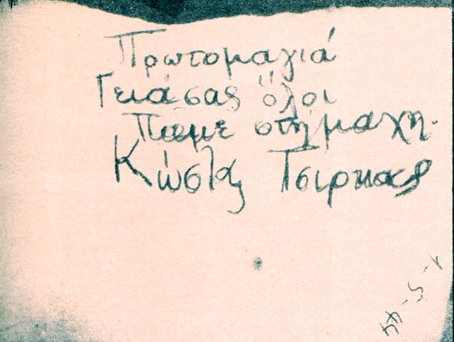 Πρωτομαγιά
Γειάσας όλοι
Πάμε στη μαχη.
Κώστας Τσιρκας
1-5-44